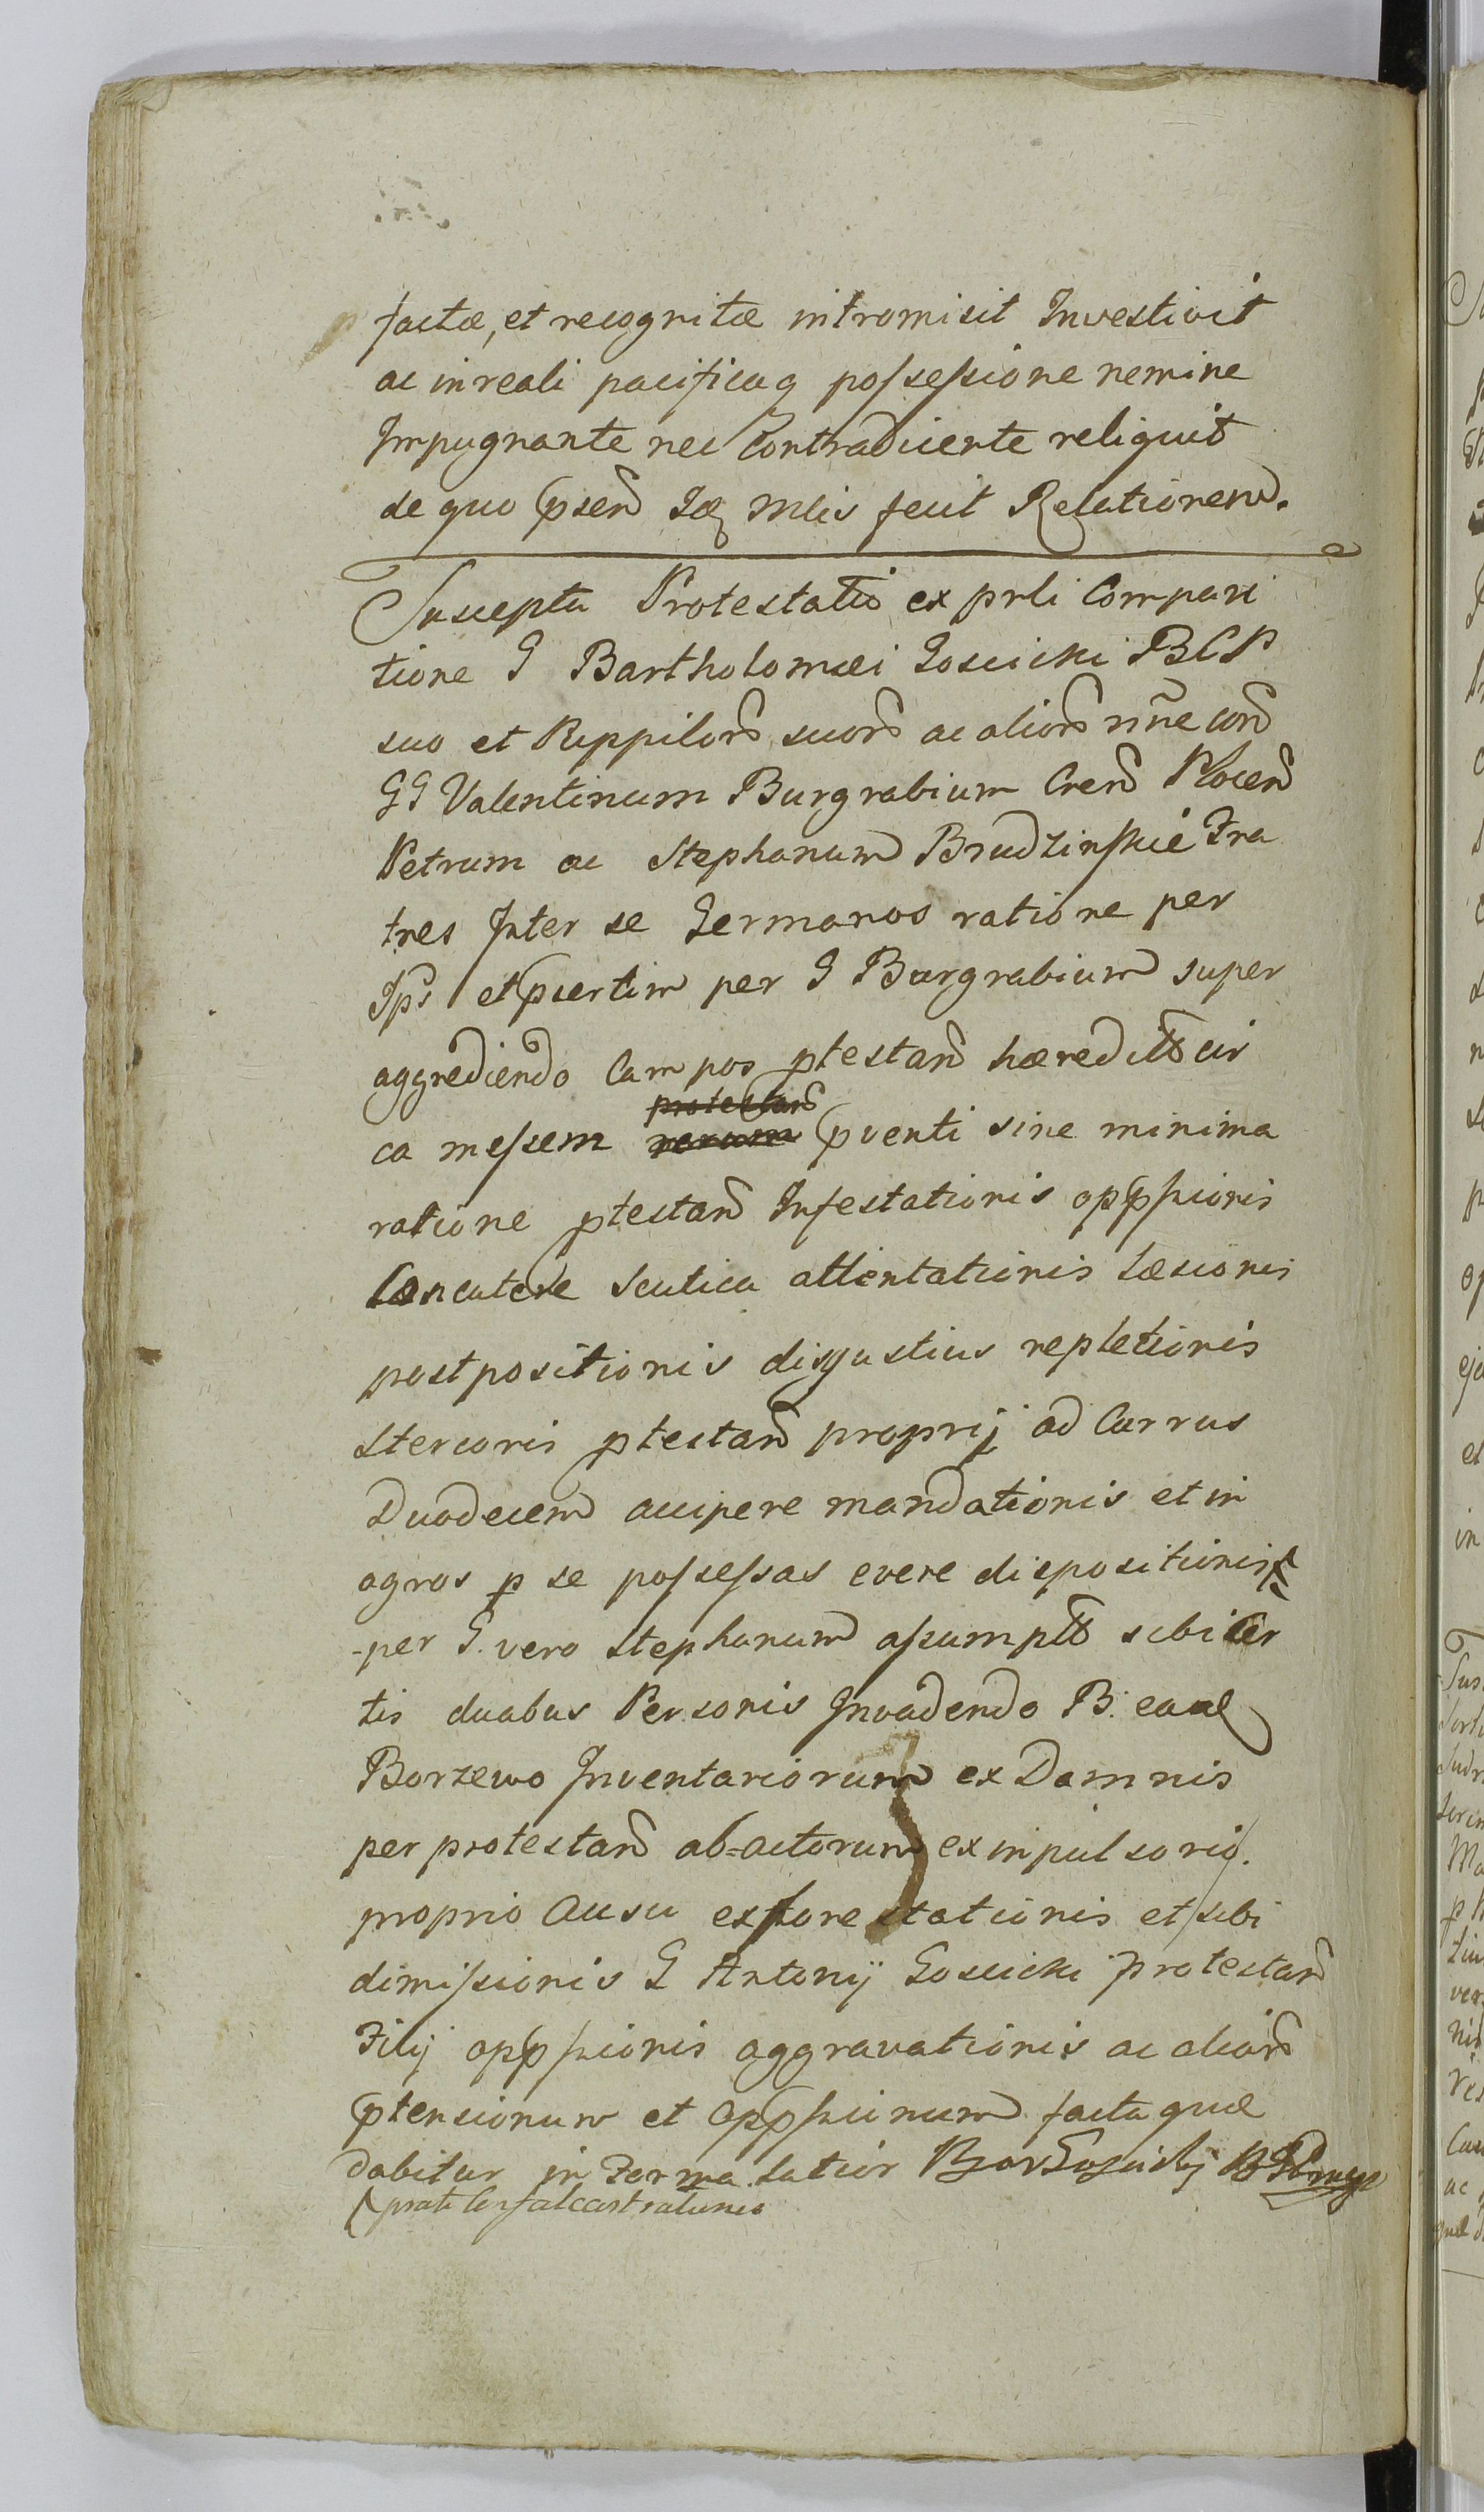 factæ, et recognitæ intromisit Investivit
ac in reali pacificaq possessione nemine
Impugnante nec Contradicente reliquit
de quo psen Idq Mlis fecit Relationem.
Suscepta Protestatio ex prli Compari
tione G Bartholomæi Goscicki BCP
suo et Ruppilors suors ac aliors nne cors
GG Valentinum Burgrabium Cren Plocen
Petrum ac Stephanum Brudzinskie Fra
tres Inter se Germanos ratione per
Ips et pcertim per G Burgrabium super
aggrediendo Campos ptestan hæreditt cir
ca messem pventi sine minima
ratione ptestan Infestationis oppssionis
Concutere scutica attentationis Læsionis
postpositionis disgustius repletionis
stercoris ptestan proprij ad Currus
Duodecem accipere mandationis et in
agros p se possessas evere dispositionis
per G. vero Stephanum assumptt sibi cer
tis duabus Personis Invadendo B. eaal
Borzewo Inventariorum ex Damnis
per protestan ab=actorum ex inpulsorio.
proprio Ausu exforestationis et sibi
dimissionis G Antonij Goscicki protestan
Filij oppssionis aggravationis ac aliors
ptensionum et Oppssionum facta quæ
dabitur in Forma latior
prati